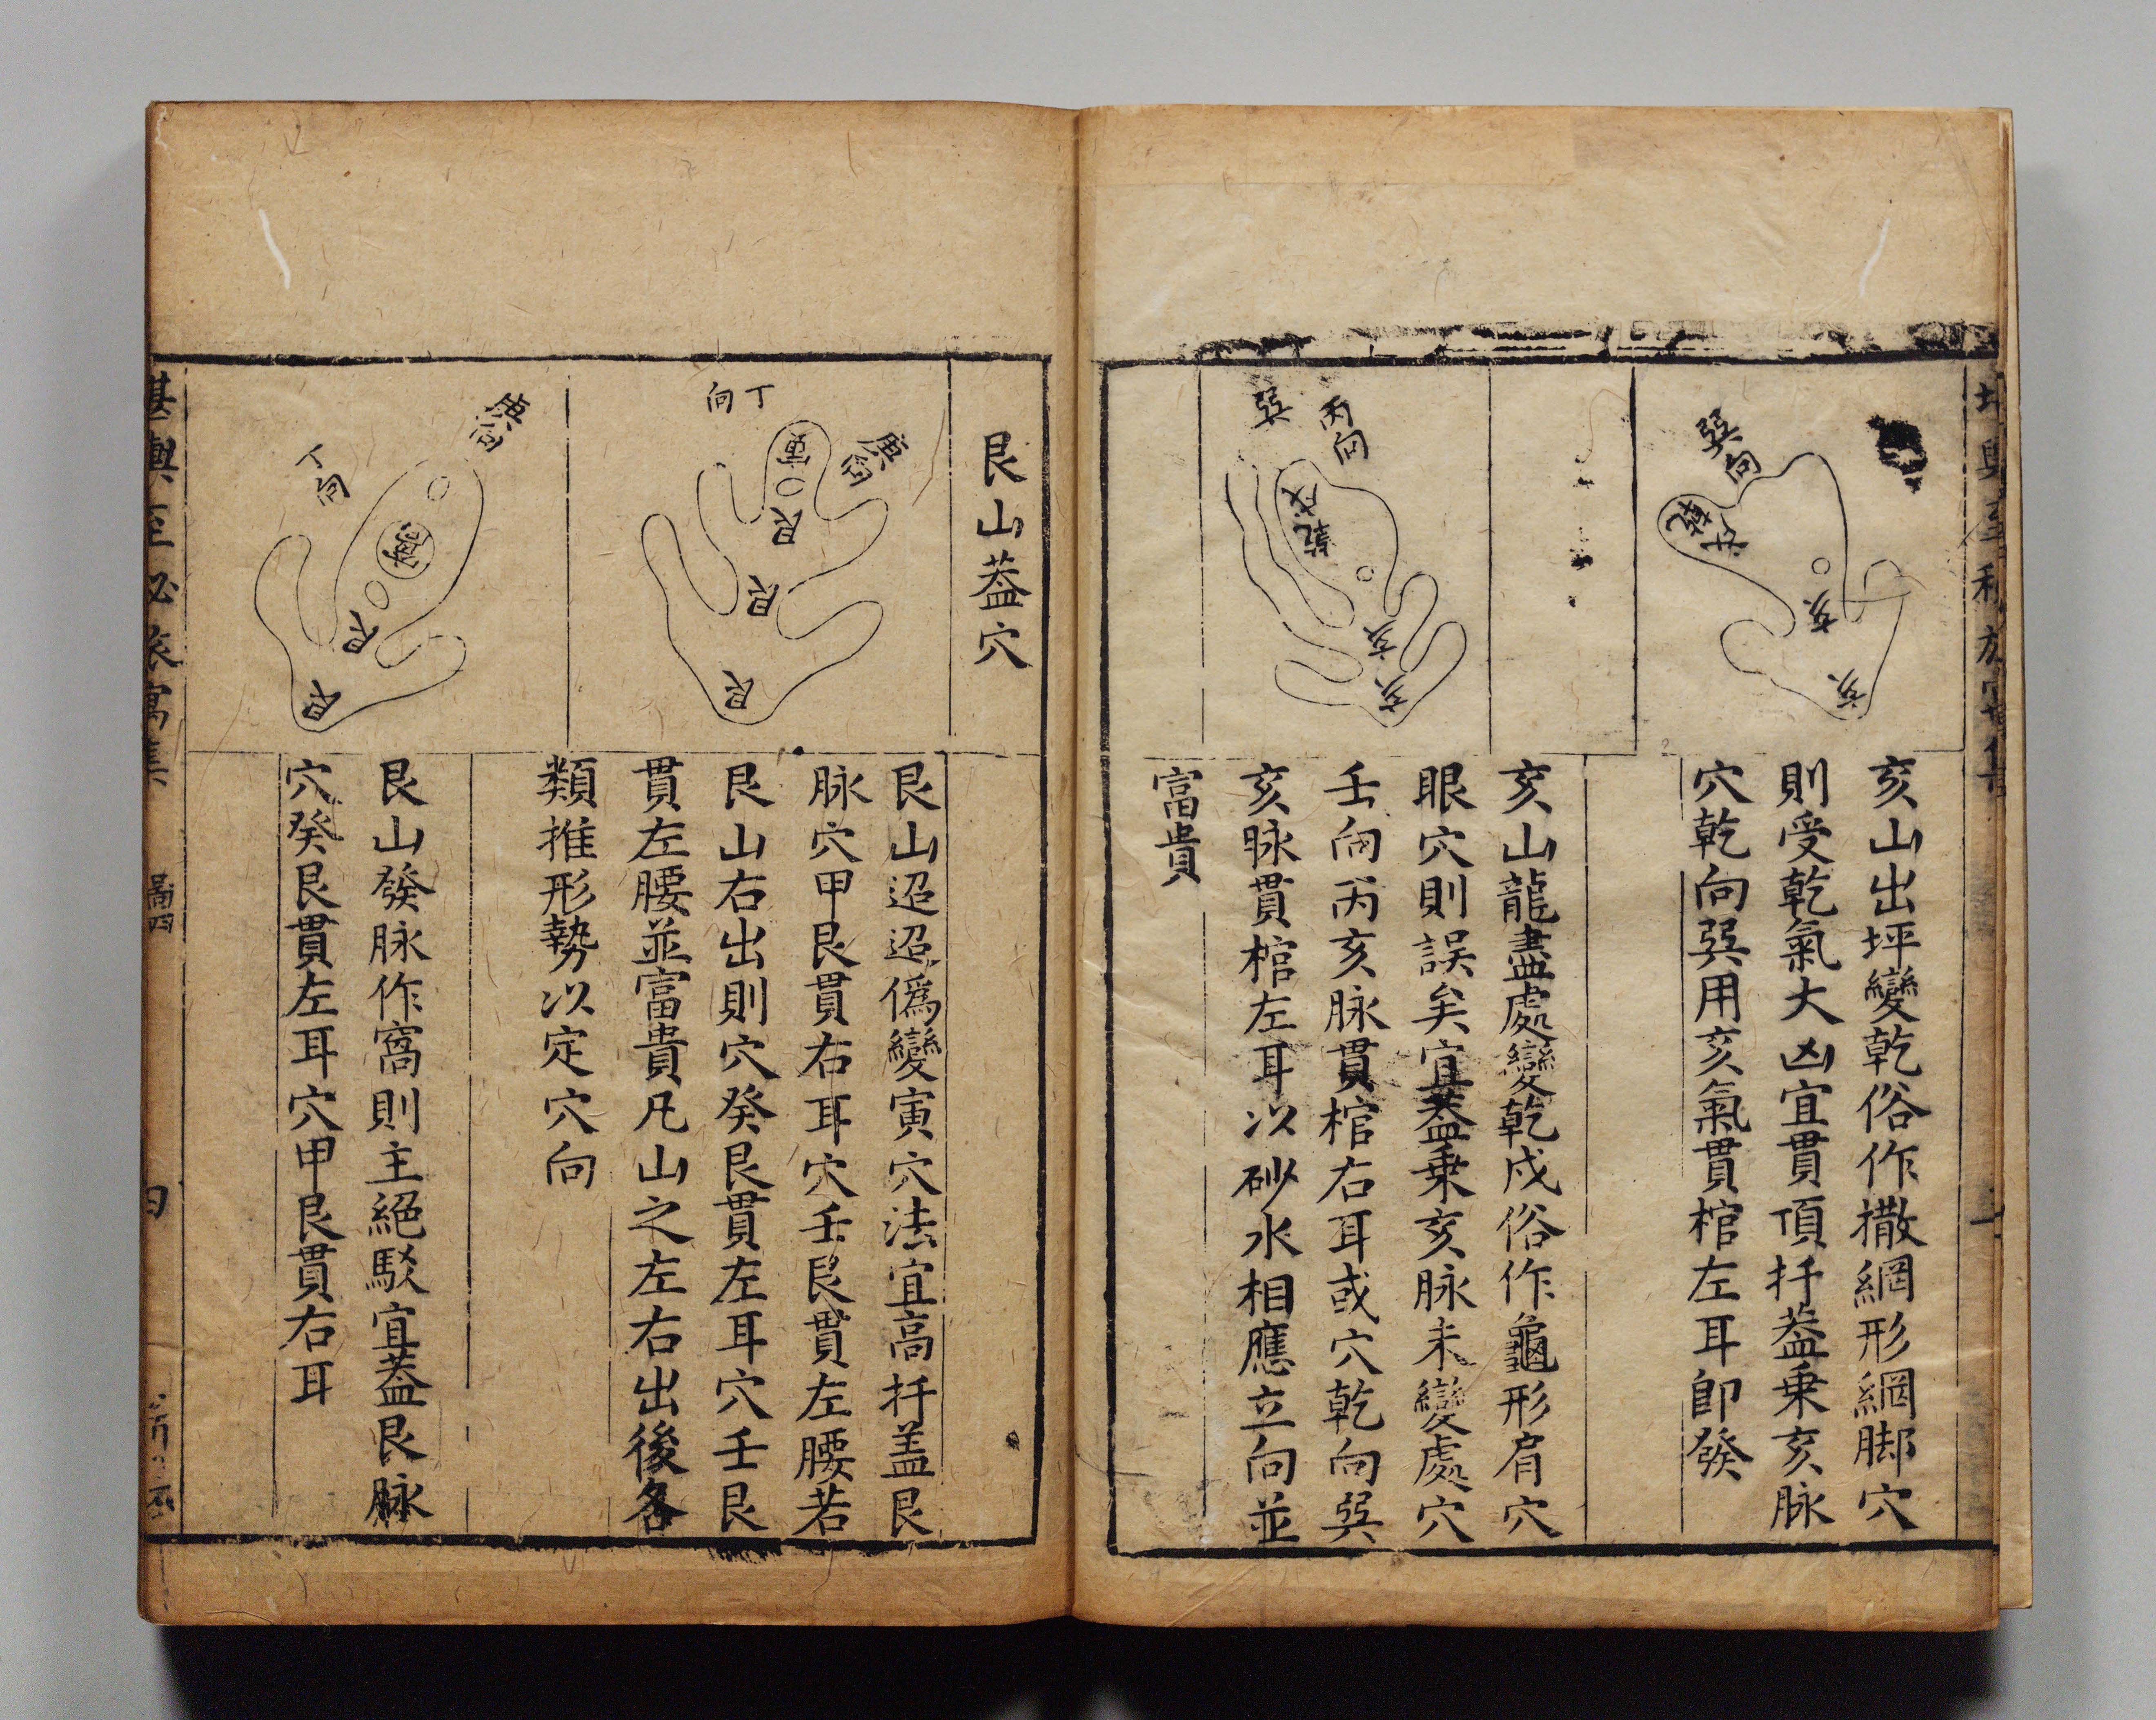 巽向
乾
亥
亥
亥山出坪變乾俗作撒網形網脚穴
則受乾氣大凶宜貫頂扦葢乗亥脉
穴乾向巽用亥氣貫棺左耳即發
丙向
巽
戌
乾
亥
亥
亥山龍盡處變乾戌俗作龜形肩穴
眼穴則誤矣宜葢乗亥脉未變處穴
壬向丙亥脉貫棺右耳或穴乾向巽
亥脉貫棺左耳以砂水相應立向並
富貴
艮山葢穴
丁向
庚向
寅
艮
艮
艮
艮山迢迢僞變寅穴法宜高扦盖艮
脉穴甲艮貫右耳穴壬艮貫左腰若
艮山右出則穴癸艮貫左耳穴壬艮
貫左腰並富貴凡山之左右出後各
類推形勢以定穴向
庚向
丁向
窩
艮
艮
艮山發脉作窩則主絕駁宜葢艮脉
穴癸艮貫左耳穴甲艮貫右耳